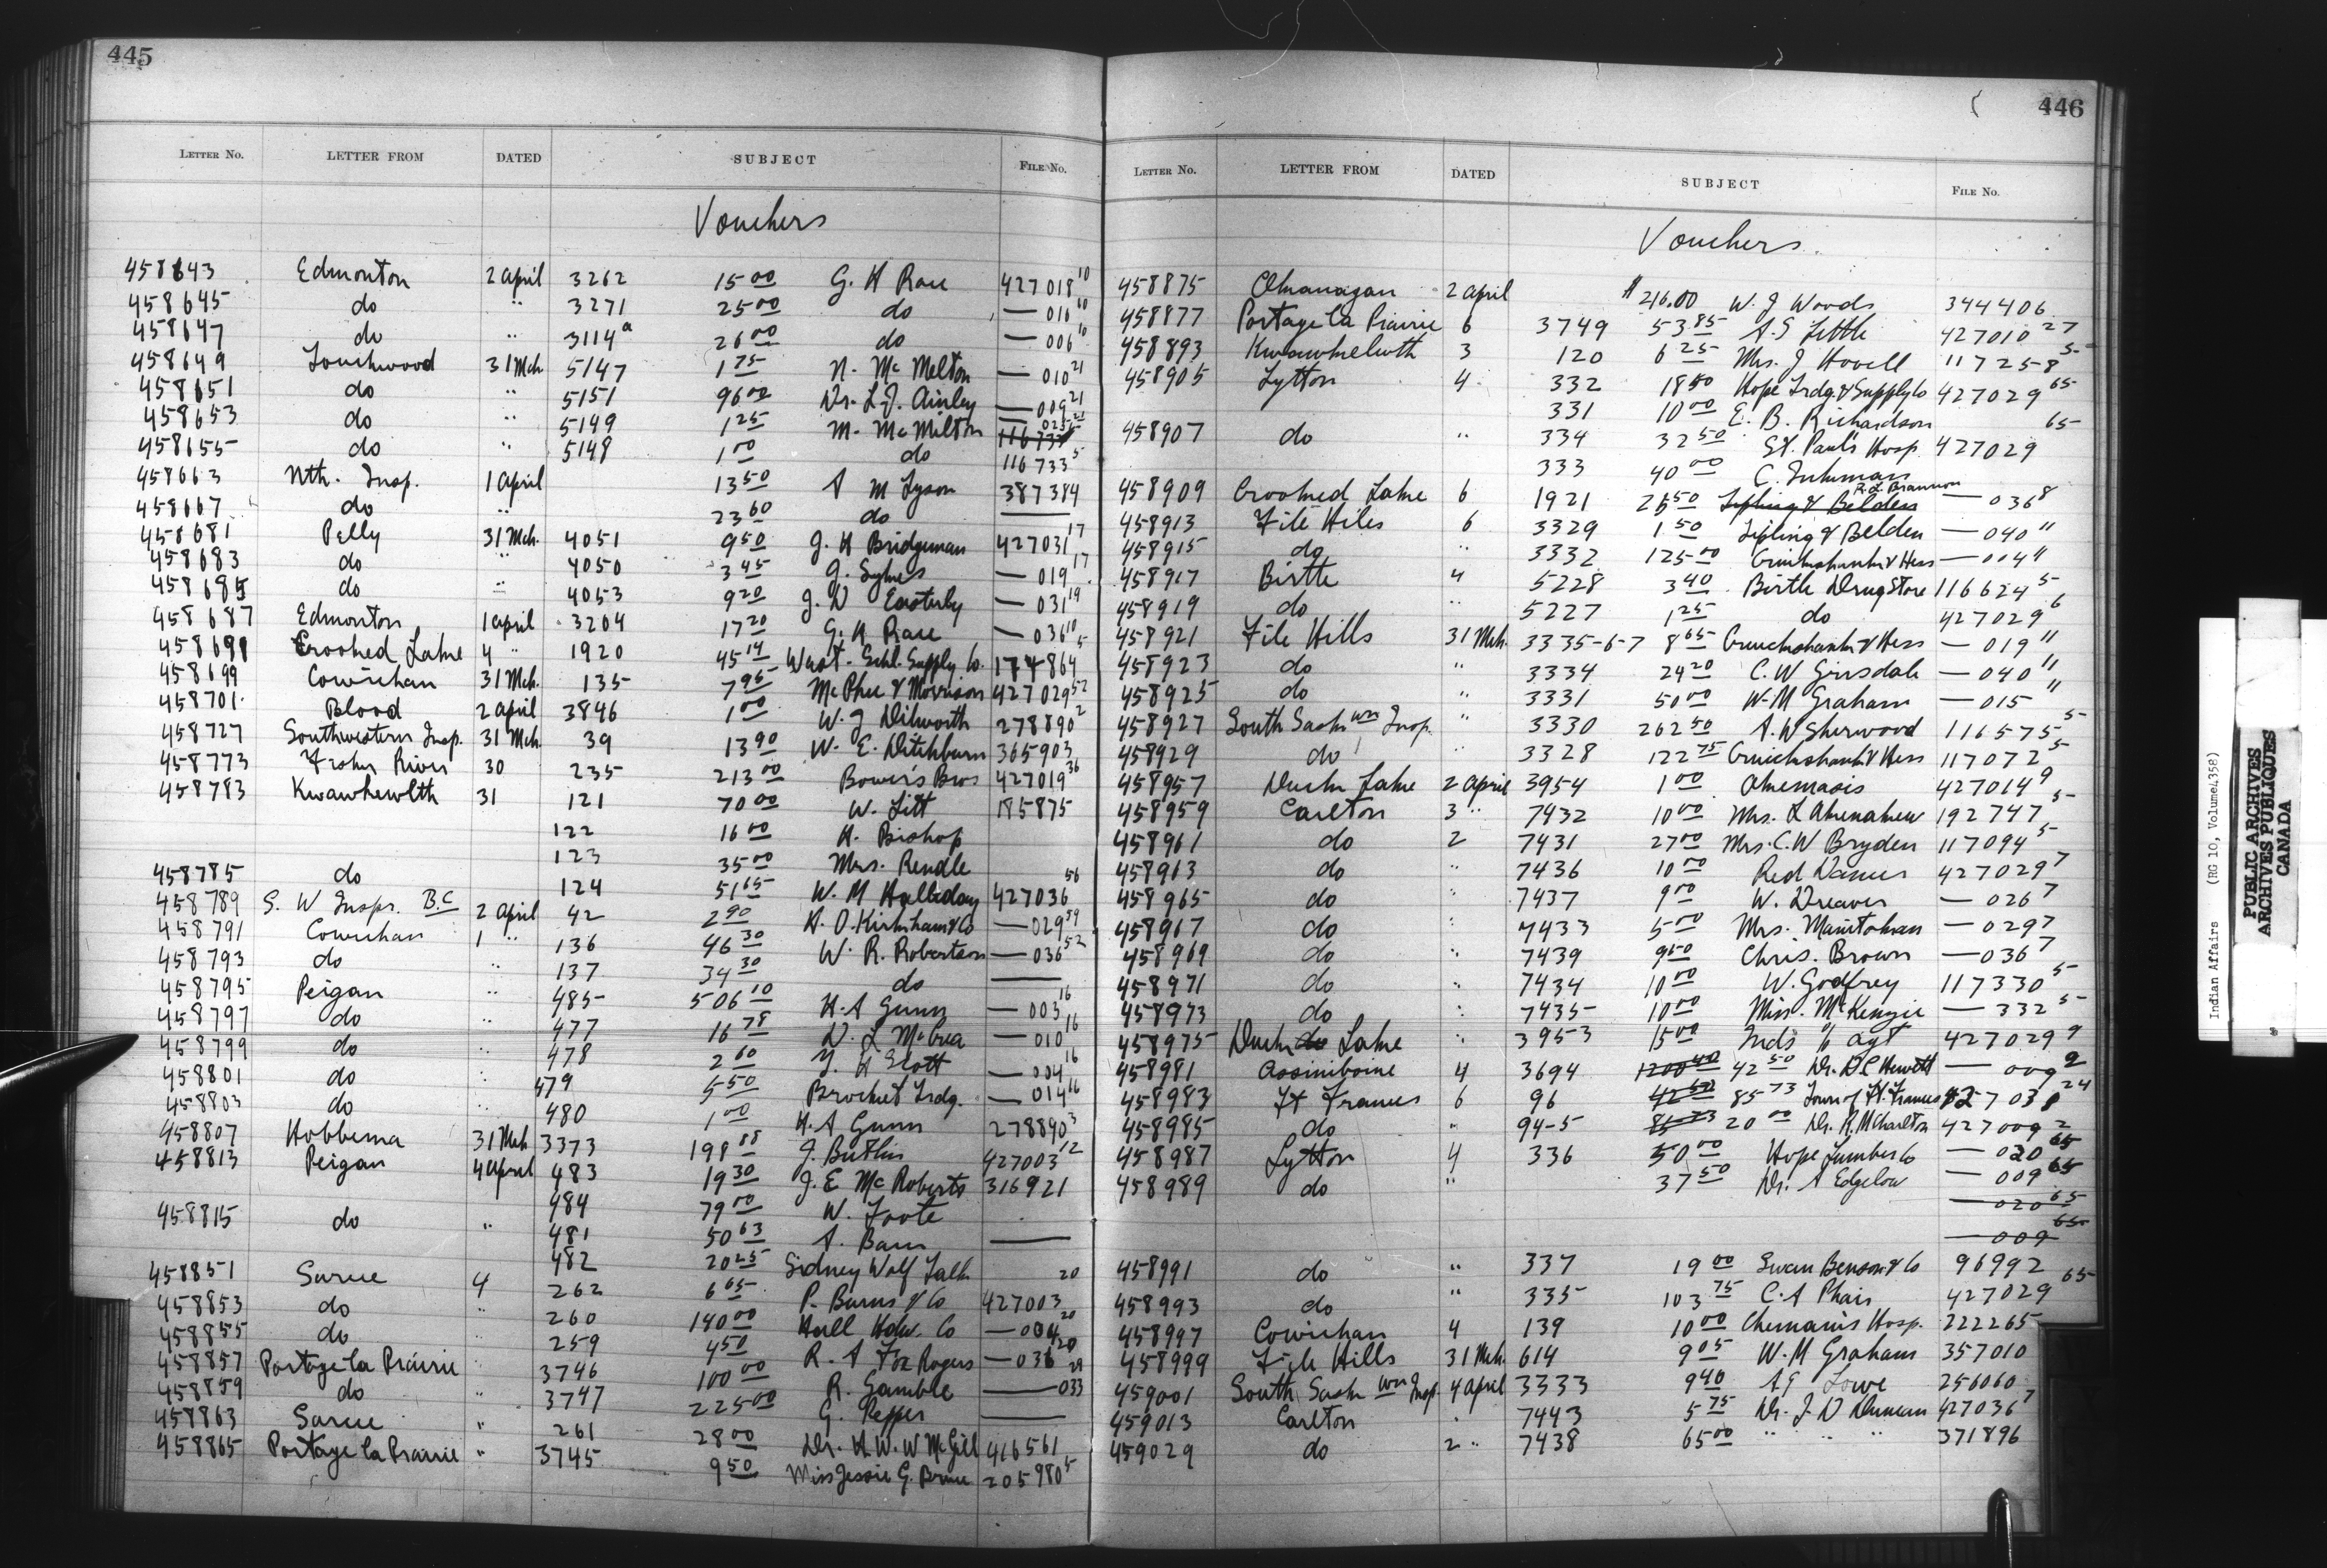 445
LETTER NO. LETTER FROM DATED SUBJECT FILE NO.
Vouchers
458643 Edmonton 2 April 3262 15 00 G. H Race 427018 10
458645 do " 3271 25 00 do — 016 10
458647 do " 3114a 26 00 do — 006 10
458649 Touchwood 31 Mch 5147 1 75 N. McMelton — 010 21
458651 do " 5151 96 00 Dr. L.J. Ainley — 009 21
458653 do " 5149 1 25 M. McMilton
458655 do " 5148 1 00 do 116733 5
458663 Nth. Insp. 1 April 13 50 A M Tyson 387384
458667 do " 23 60 do ———
458681 Pelly 31 Mch. 4051 9 50 J. H Bridgeman 427031 17
458683 do " 4050 3 45 J. Sykes — 019 17
458685 do " 4053 9 20 J. D Easterby — 031 19
458687 Edmonton 1 April 3204 17 20 G. H Race — 036 10
458691 Crooked Lake 4 " 1920 45 14 West. Schl. Supply Co. 174864 5
458699 Cowichan 31 Mch. 135 7 95 McPhee & Morrison 427029 52
458701 Blood 2 April 3846 1 00 W. J Dilworth 278890 2
458727 Southwestern Insp. 31 Mch 39 13 90 W. E. Ditchburn 365903
458773 Fraser River 30 235 213 00 Bowers Bros 427019 36
458783 Kwawkewlth 31 121 70 00 W. Litt 185875
122 16 00 H. Bishop
123 35 00 Mrs. Rendle
458785 do 124 51 65 W. M Halliday 427036 56
458789 S. W Inspr. B.C 2 April 42 2 90 H. O. Kirkham & Co — 029 59
458791 Cowichan 1 " 136 46 30 W. R. Robertson — 036 52
458793 do " 137 34 30 do ———
458795 Peigan 485 506 10 H. A Gunn — 003 16
458797 do " 477 16 78 D. L McCrea — 010 16
458799 do 478 2 60 Y. H Scott — 004 16
458801 do " 479 5 50 Brocket Trdg. — 014 16
458803 do " 480 1 00 H. A Gunn 278890 3
458807 Hobbema 31 Mch 3373 198 88 J. Butlin 427003 12
458813 Peigan 4 April 483 19 30 J. E McRoberts 316921
484 79 00 W. Foote
458815 do " 481 50 63 A. Baun ———
482 20 25 Sidney Wolf Talk
458851 Sarcee 4 262 6 65 P. Burns & Co 427003 20
458853 do " 260 140 00 Hall Hdw. Co — 004 20
458855 do 259 4 50 R. A Fox Rogers — 036 20
458857 Portage la Prairie " 3746 100 00 R. Gamble — 033 29
458859 do " 3747 225 00 G. Pepper ———
458863 Sarcee " 261 28 00 Dr. H. W. W McGill 416561
458865 Portage la Prairie " 3745 9 50 Miss Jessie G. Bruce 205980 5
446
LETTER NO. LETTER FROM DATED SUBJECT FILE NO.
Vouchers
458875 Okanagan 2 April $216.00 W. J Woods 344406
458877 Portage la Prairie 6 3749 53 85 A. S Little 427010 27
458893 Kwawkewlth 3 120 6 25 Mrs. J Hovell 117258 5
458905 Lytton 4 332 18 50 Hope Trdg. & Supply Co 427029 65
331 10 00 E. B. Richardson
458907 do " 334 32 50 St. Paul's Hosp 427029 65
333 40 00 C.
458909 Crooked Lake 6 1921 26 50 Sipling & Belden R. L. Brannon — 036 8
458913 File Hills 6 3329 1 50 Sipling & Belden — 040 11
458915 do " 3332 125 00 Cruickshank & Hess — 004 11
458917 Birtle 4 5228 3 40 Birtle Drug Store 116624 5
458919 do " 5227 1 25 do 427029 6
458921 File Hills 31 Mch. 3335-6-7 8 65 Cruickshank & Hess — 019 11
458923 do " 3334 24 20 C. W Girsdale — 040 11
458925 do " 3331 50 00 W. M Graham — 015 11
458927 South Sask wn Insp. " 3330 262 50 A. W Sherwood 116575 5
458929 do " 3328 122 75 Cruickshank & Hess 117072 5
458957 Duck Lake 2 April 3954 1 00 Okemasis 427014 9
458959 Carlton 3 " 7432 10 00 Mrs. L Ahenakew 192747 5
458961 do 2 7431 27 00 Mrs. C. W Bryden 117094 5
458963 do " 7436 10 00 427029 7
458965 do " 7437 9 00 W. Dreaver — 026 7
458967 do " 7433 5 00 Mrs. Manitokan — 029 7
458969 do " 7439 9 50 Chris. Brown — 036 7
458971 do " 7434 10 00 W. Godfrey 117330 5
458973 do " 7435 10 00 Miss. McKenzie — 332 5
458975 Duck do Lake " 3953 15 00 Inds % agt 427029 9
458981 Assiniboine 4 3694 42 50 Dr. D C Hewett — 009 2
458983 Ft Frances 6 96 85 73 Town of Ft. Frances 427038 24
458985 do " 94-5 85 73 20 00 Dr. R. McCharlton 427009 2
458987 Lytton 4 336 50 00 Hope Lumber Co — 020 65
458989 do " 37 50 Dr. A Edgelow — 009 65
— 020 65
— 009 65
458991 do " 337 19 00 Swan Benson & Co 96992
458993 do " 335 103 75 C. A Phair 427029 65
458997 Cowichan 4 139 10 00 Chemainis Hosp. 222265
458999 File Hills 31 Mch. 614 9 05 W. M Graham 357010
459001 South Sask wn Insp. 4 April 3333 9 40 Lowe 256060
459013 Carlton " 7443 5 75 Dr. J. D Duncan 427036 7
459029 do 2 " 7438 65 00 " " " 371896
Indian Affairs (RG 10, Volume 4358)
PUBLIC ARCHIVES
ARCHIVES PUBLIQUES
CANADA